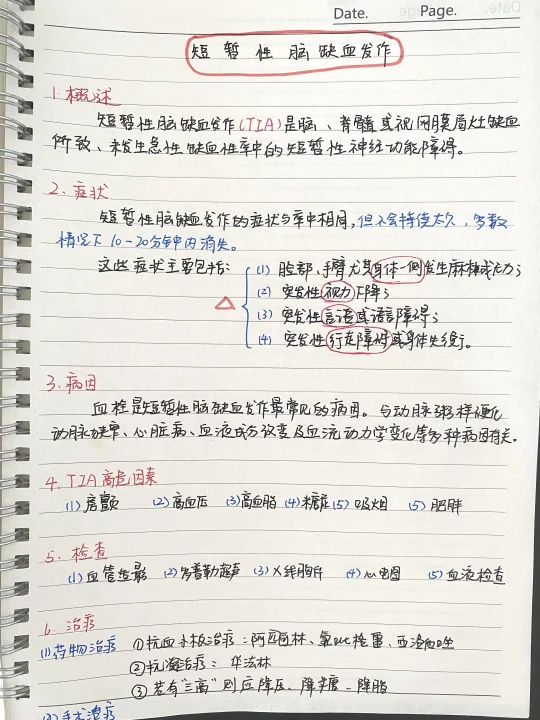 Date. Page.
短暂性脑缺血发作
1.概述
短暂性脑缺血发作(TIA)是脑、脊髓或视网膜局灶缺血
所致、未发生急性缺血性卒中的短暂性神经功能障碍。
2.症状
短暂性脑缺血发作的症状与卒中相同,但不会持续太久,多数
情况下10-20分钟内消失。
这些症状主要包括:
(1) 脸部、手臂尤其身体一侧发生麻木或无力;
(2) 突发性视力下降;
(3) 突发性言语或语言障碍;
(4) 突发性行走障碍或身体失衡。
3.病因
血栓是短暂性脑缺血发作最常见的病因。与动脉粥样硬化
动脉狭窄、心脏病、血液成分改变及血流动力学变化等多种病因有关。
4.TIA高危因素
(1)房颤 (2)高血压 (3)高血脂 (4)糖尿 (5)吸烟 (5)肥胖
5.检查
(1)血管造影 (2)多普勒超声 (3)X线胸片 (4)心电图 (5)血液检查
6.治疗
(1)药物治疗 ①抗血小板治疗:阿匹林、氯吡格雷、西洛他唑
②抗凝治疗:华法林
③若有"三高"则应降压、降糖、降脂
(2)手术治疗